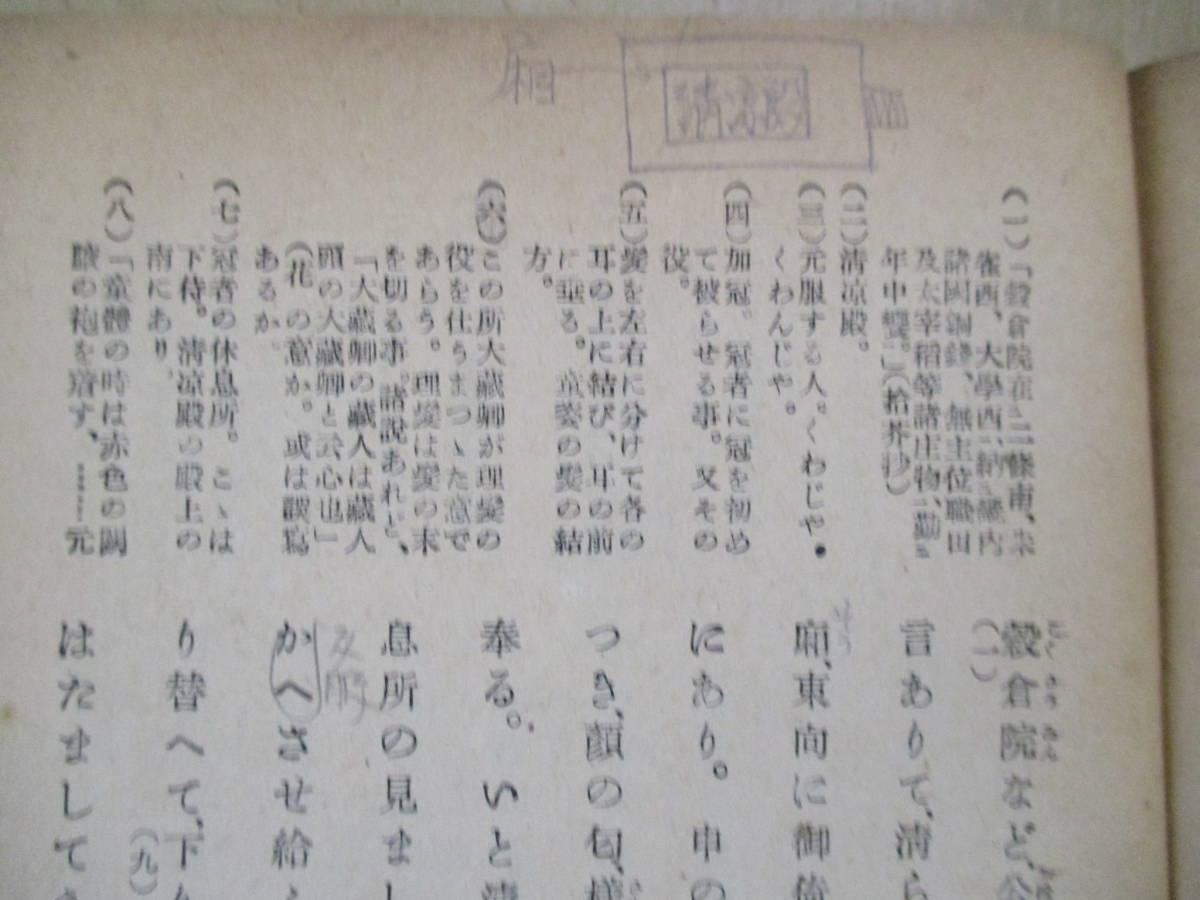 廂
清涼殿
(一)「穀倉院在二二條南、朱
雀西、大學西一、納二畿内
諸國銅錢、無主位職田
及太宰稻等諸庄物一、勤二
年中饗一。」(拾芥抄)
(二)清涼殿。
(三)元服する人。くわじや・
くわんじや。
(四)加冠。冠者に冠を初め
て被らせる事。又その
役。
(五)髮を左右に分けて各の
耳の上に結び、耳の前
に垂る。童姿の髮の結
方。
(六)この所大藏卿が理髮の
役を仕うまつゝた意で
あらう。理髮は髮の末
を切る事。諸説あれど、
「大藏卿の藏人は藏人
頭の大藏卿と云心也」
(花)の意か。或は誤寫
あるか。
(七)冠者の休息所。こゝは
下侍。清凉殿の殿上の
南にあり。
(八)「童體の時は赤色の闕
腋の袍を著す、……元
穀倉院など、公
(一)
言ありて、清ら
廂、東向に御倚
にあり。申の
つき、顔の匂、樣
奉る。いと清
息所の見まし
かへさせ給
り替へて、下
(九)
はたまして